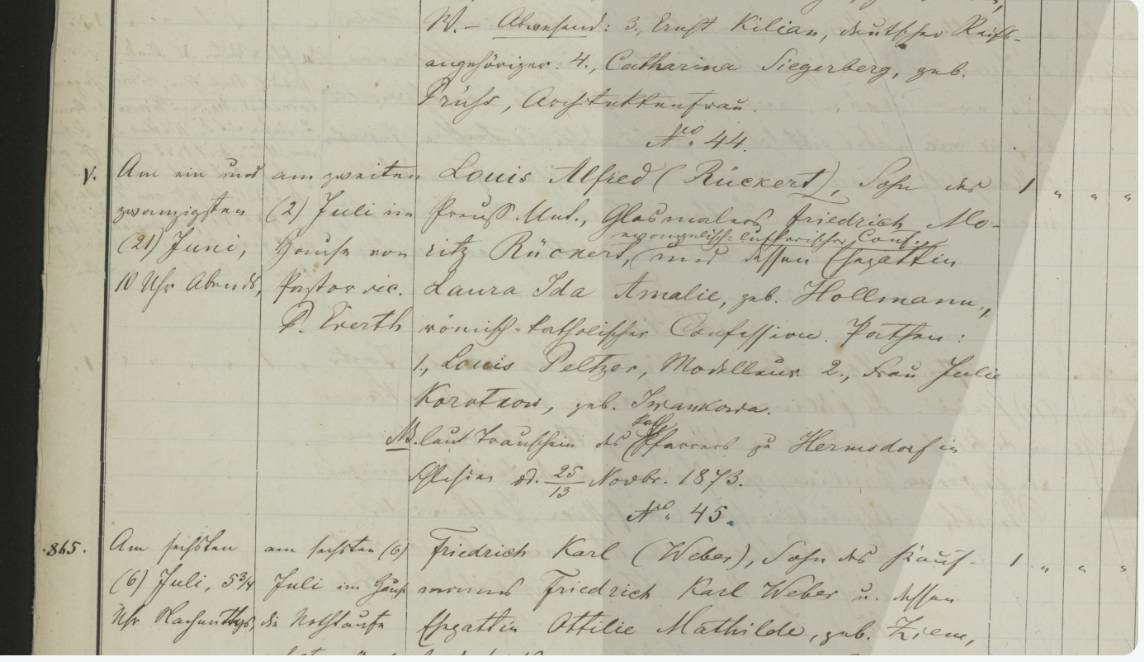 W. – Abwesend: 3., Ernst Kilian, deutscher Reichs-
angehöriger. 4., Catharina Siegerberg, geb.
Prühs, Architektenfrau.
No. 44.
V.
Am ein und
zwanzigsten
(21) Juni,
10 Uhr Abends,
am zweiten
(2) Juli im
Hause von
Pastor vic.
P. Everth
Louis Alfred (Rückert), Sohn des
Preuß. Unt., Glasmalers Friedrich Mo-
evangelisch-lutherischer Conf.
ritz Rückert, und dessen Ehegattin
Laura Ida Amalie, geb. Hollmann,
römisch-katholischer Confession. Pathen:
1., Louis Peltzer, Modelleur 2., Frau Julie
Korotkow, geb. Iwankowa.
NB. laut Trauschein des kath. Pfarrers zu Hermsdorf in
Schlesien d. 25/13 Novbr. 1873.
1 " " "
No. 45.
865.
Am sechsten
(6) Juli, 5 3/4
Uhr Nachmittgs,
am sechsten (6)
Juli im Hause
die Nothtaufe
Friedrich Karl (Weber), Sohn des Kauf-
manns Friedrich Karl Weber u. dessen
Ehegattin Ottilie Mathilde, geb. Ziem,
1 " " "